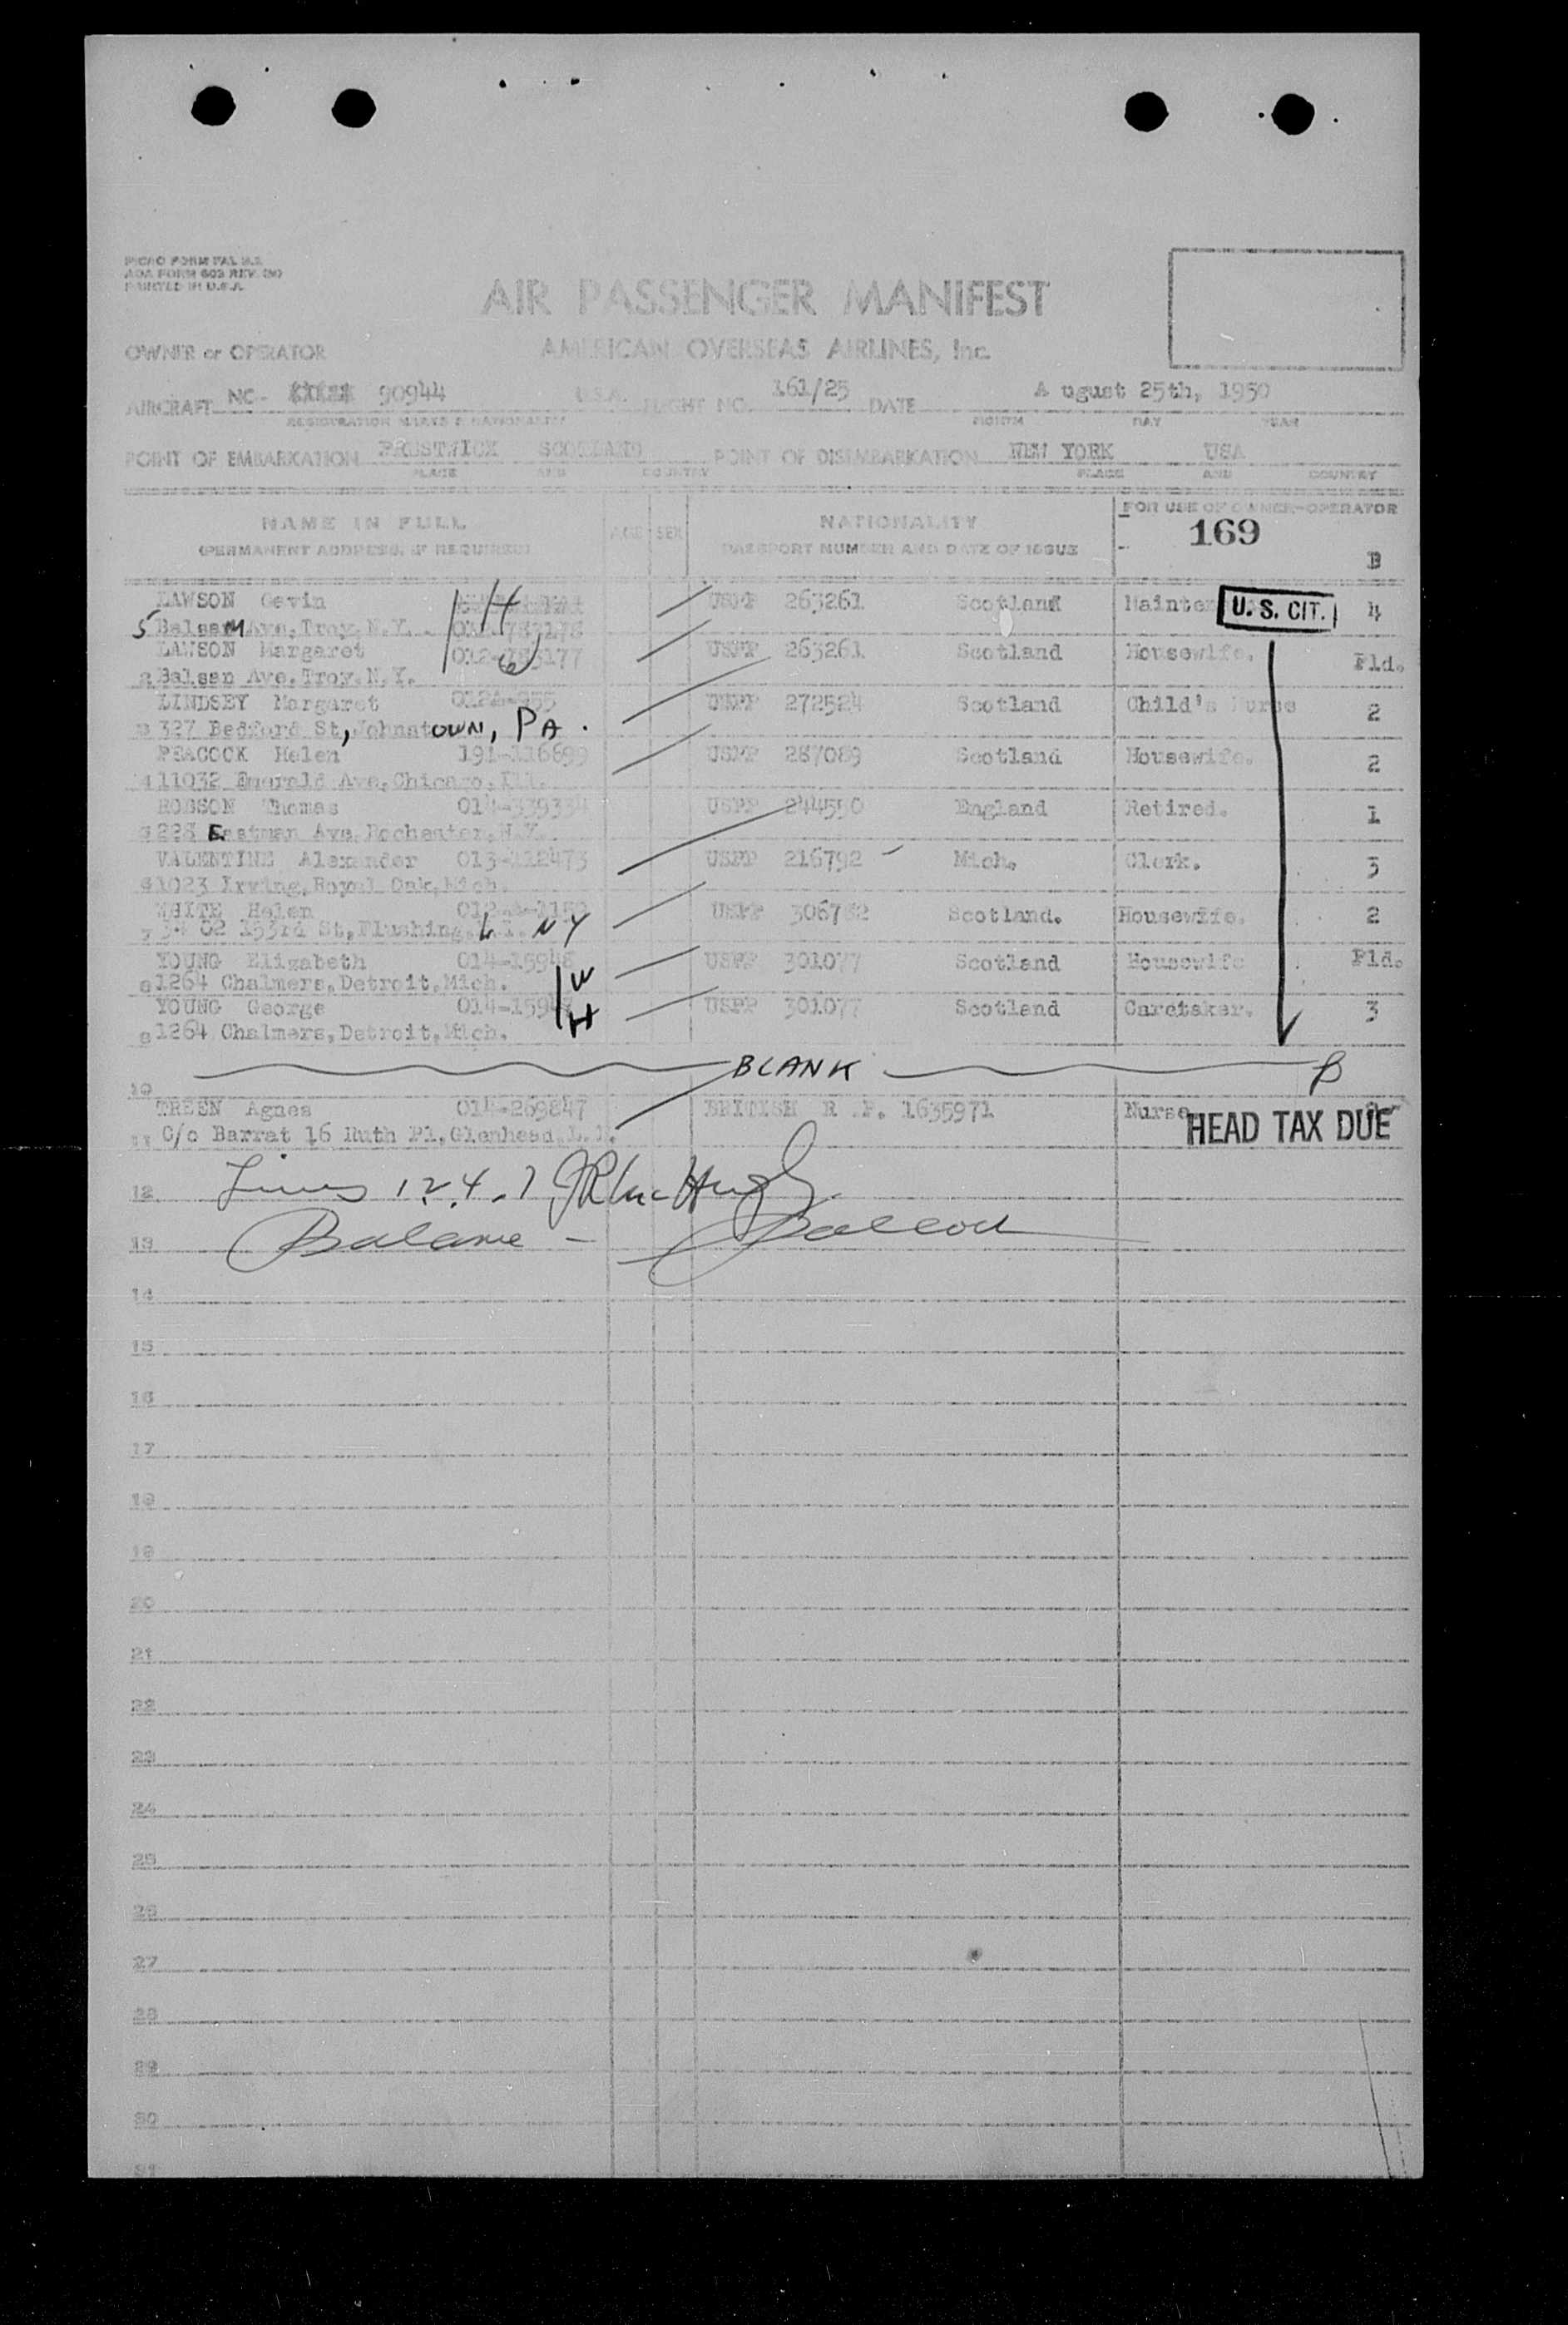 PICAO FORM PAL
AOA FORM 603 REV.
PRINTED IN U.S.A.
AIR PASSENGER MANIFEST
OWNER or OPERATOR AMERICAN OVERSEAS AIRLINES, Inc.
AIRCRAFT NC- 90944 U.S.A. FLIGHT NO. 161/25 DATE A ugust 25th, 1950
REGISTRATION MARKS & NATIONALITY MONTH DAY YEAR
POINT OF EMBARKATION PRESTWICK SCOTLAND POINT OF DISEMBARKATION NEW YORK USA
PLACE AND COUNTRY PLACE AND COUNTRY
NAME IN FULL AGE SEX NATIONALITY FOR USE OF OWNER-OPERATOR
(PERMANENT ADDRESS, IF REQUIRED) PASSPORT NUMBER AND DATE OF ISSUE 169
B
LAWSON Gavin H USPP 263261 Scotland U. S. CIT. 4
5 Balsam Ave, Troy, N.Y.
LAWSON Margaret USPP 263261 Scotland Housewife. Fld.
2 Balsan Ave. Troy. N.Y.
LINDSEY Margaret USPP 272524 Scotland Child's Nurse 2
3 327 Bedford St, Johnstown, PA.
PEACOCK Helen 191-116699 USPP 287089 Scotland Housewife. 2
4 11032 Emerald Ave, Chicago, Ill.
ROBSON Thomas 014-339334 USPP 244590 England Retired. 1
228 Eastman Ave, Rochester, N.Y.
VALENTINE Alexander 013-112473 USPP 216792 Mich. Clerk. 3
1023 Irving, Royal Oak, Mich.
WHITE Helen USPP 306782 Scotland. Housewife. 2
7 34 02 153rd St, Flushing, L.I. NY
YOUNG Elizabeth 014-15948 W USPP 301077 Scotland Housewife Fld.
8 1264 Chalmers, Detroit, Mich.
YOUNG George H USPP 301077 Scotland Caretaker. 3
9 1264 Chalmers, Detroit, Mich.
BLANK
10
TREEN Agnes 014-269847 BRITISH R .P. 1635971 Nurse HEAD TAX DUE
11 C/o Barrat 16 Ruth Pl, Glenhead, L.I.
12 Lines 1 2. 4. 7
13 Balance -
14
15
16
17
18
19
20
21
22
23
24
25
26
27
28
29
30
31